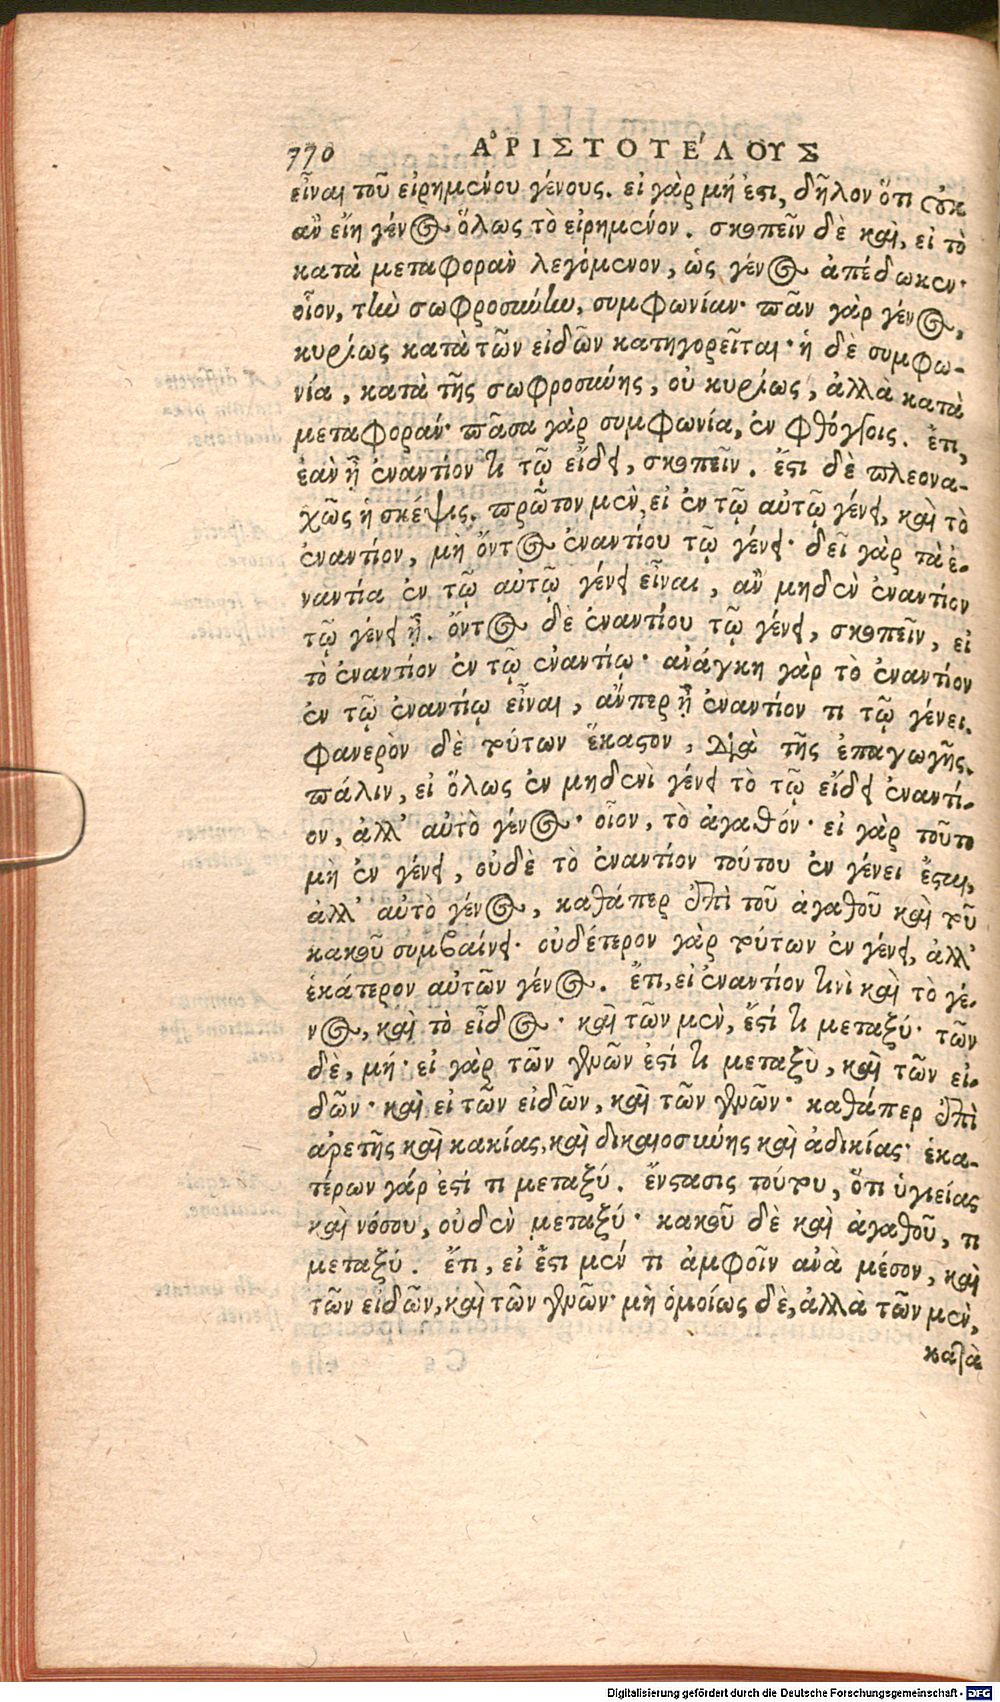 770 ἈΡΙΣΤΟΤΈΛΟΥΣ
εἶναι τοῦ εἰρημένου γένους. εἰ γὰρ μή ἐστι, δῆλον ὅτι οὐκ
ἂν εἴη γένος ὅλως τὸ εἰρημένον. σκοπεῖν δὲ καὶ, εἰ τὸ
κατὰ μεταφορὰν λεγόμενον, ὡς γένος ἀπέδωκεν·
οἷον, τὴν σωφροσύνην, συμφωνίαν· πᾶν γὰρ γένος,
κυρίως κατὰ τῶν εἰδῶν κατηγορεῖται· ἡ δὲ συμφω-
νία, κατὰ τῆς σωφροσύνης, οὐ κυρίως, ἀλλὰ κατὰ
μεταφοράν· πᾶσα γὰρ συμφωνία, ἐν φθόγγοις. ἔτι,
ἐὰν ᾖ ἐναντίον τι τῷ εἴδει, σκοπεῖν. ἔστι δὲ πλεονα-
χῶς ἡ σκέψις. πρῶτον μὲν, εἰ ἐν τῷ αὐτῷ γένει, καὶ τὸ
ἐναντίον, μὴ ὄντος ἐναντίου τῷ γένει· δεῖ γὰρ τὰ ἐ-
ναντία ἐν τῷ αὐτῷ γένει εἶναι, ἂν μηδὲν ἐναντίον
τῷ γένει ᾖ. ὄντος δὲ ἐναντίου τῷ γένει, σκοπεῖν, εἰ
τὸ ἐναντίον ἐν τῷ ἐναντίῳ· ἀνάγκη γὰρ τὸ ἐναντίον
ἐν τῷ ἐναντίῳ εἶναι, ἄνπερ ᾖ ἐναντίον τι τῷ γένει.
φανερὸν δὲ τούτων ἕκαστον, διὰ τῆς ἐπαγωγῆς.
πάλιν, εἰ ὅλως ἐν μηδενὶ γένει τὸ τῷ εἴδει ἐναντί-
ον, ἀλλ' αὐτὸ γένος· οἷον, τὸ ἀγαθόν· εἰ γὰρ τοῦτο
μὴ ἐν γένει, οὐδὲ τὸ ἐναντίον τούτου ἐν γένει ἔσται,
ἀλλ' αὐτὸ γένος, καθάπερ ἐπὶ τοῦ ἀγαθοῦ καὶ τοῦ
κακοῦ συμβαίνει· οὐδέτερον γὰρ τούτων ἐν γένει, ἀλλ'
ἑκάτερον αὐτῶν γένος. ἔτι, εἰ ἐναντίον τινὶ καὶ τὸ γέ-
νος, καὶ τὸ εἶδος· καὶ τῶν μὲν, ἔστί τι μεταξύ· τῶν
δὲ, μή· εἰ γὰρ τῶν γενῶν ἐστί τι μεταξὺ, καὶ τῶν εἰ-
δῶν· καὶ εἰ τῶν εἰδῶν, καὶ τῶν γενῶν· καθάπερ ἐπὶ
ἀρετῆς καὶ κακίας, καὶ δικαιοσύνης καὶ ἀδικίας· ἑκα-
τέρων γάρ ἐστί τι μεταξύ. ἔνστασις τούτου, ὅτι ὑγιείας
καὶ νόσου, οὐδὲν μεταξύ· κακοῦ δὲ καὶ ἀγαθοῦ, τι
μεταξύ. ἔτι, εἰ ἔστι μέν τι ἀμφοῖν ἀνὰ μέσον, καὶ
τῶν εἰδῶν, καὶ τῶν γενῶν· μὴ ὁμοίως δὲ, ἀλλὰ τῶν μὲν,
κατὰ
Digitalisierung gefördert durch die Deutsche Forschungsgemeinschaft - DFG